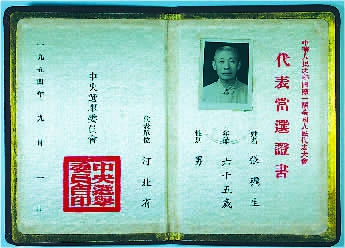 中華人民共和國第一屆全國人民代表大會
代表當選證書
姓名
年齡 六十五歲
性別 男
代表單位 河北省
中央選舉委員會
一九五四年九月
中央選舉
委員會印